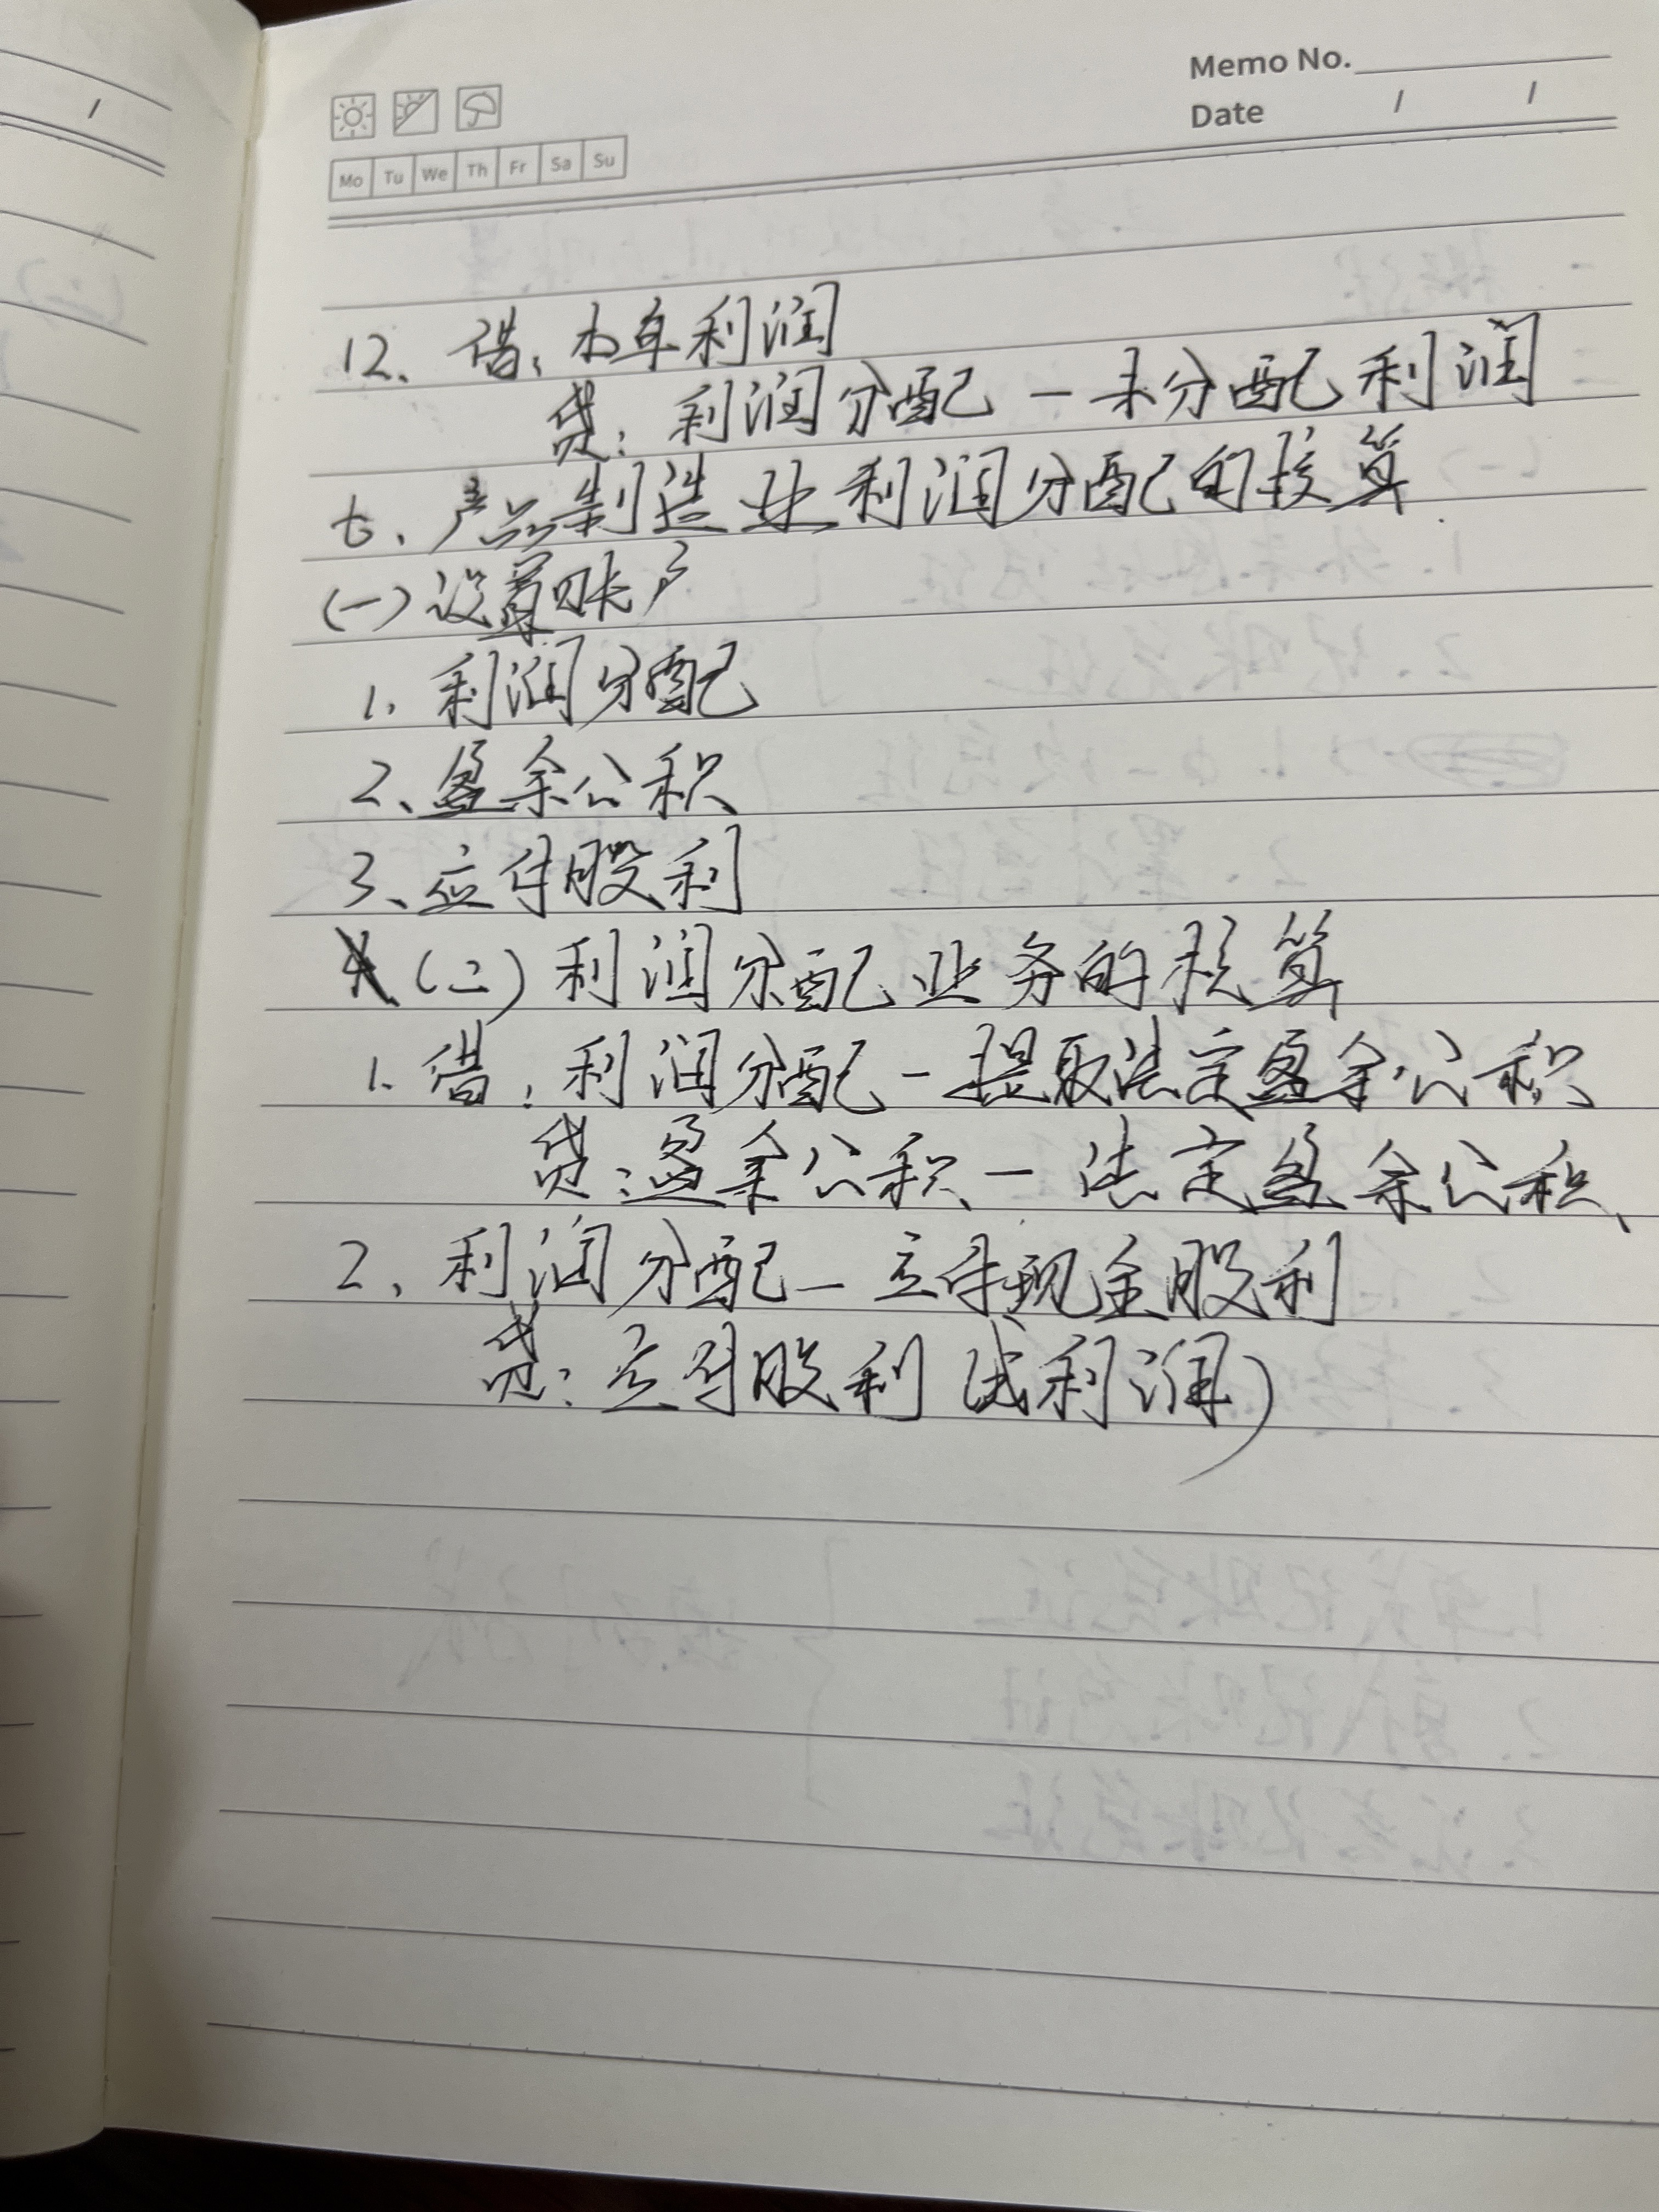 Memo No.
Date / /
Mo Tu We Th Fr Sa Su
12、借：本年利润
贷：利润分配－未分配利润
七、产品制造业利润分配的核算
(一)设置账户
1、利润分配
2、盈余公积
3、应付股利
(二)利润分配业务的核算
1、借：利润分配－提取法定盈余公积
贷：盈余公积－法定盈余公积
2、利润分配－应付现金股利
贷：应付股利(或利润)